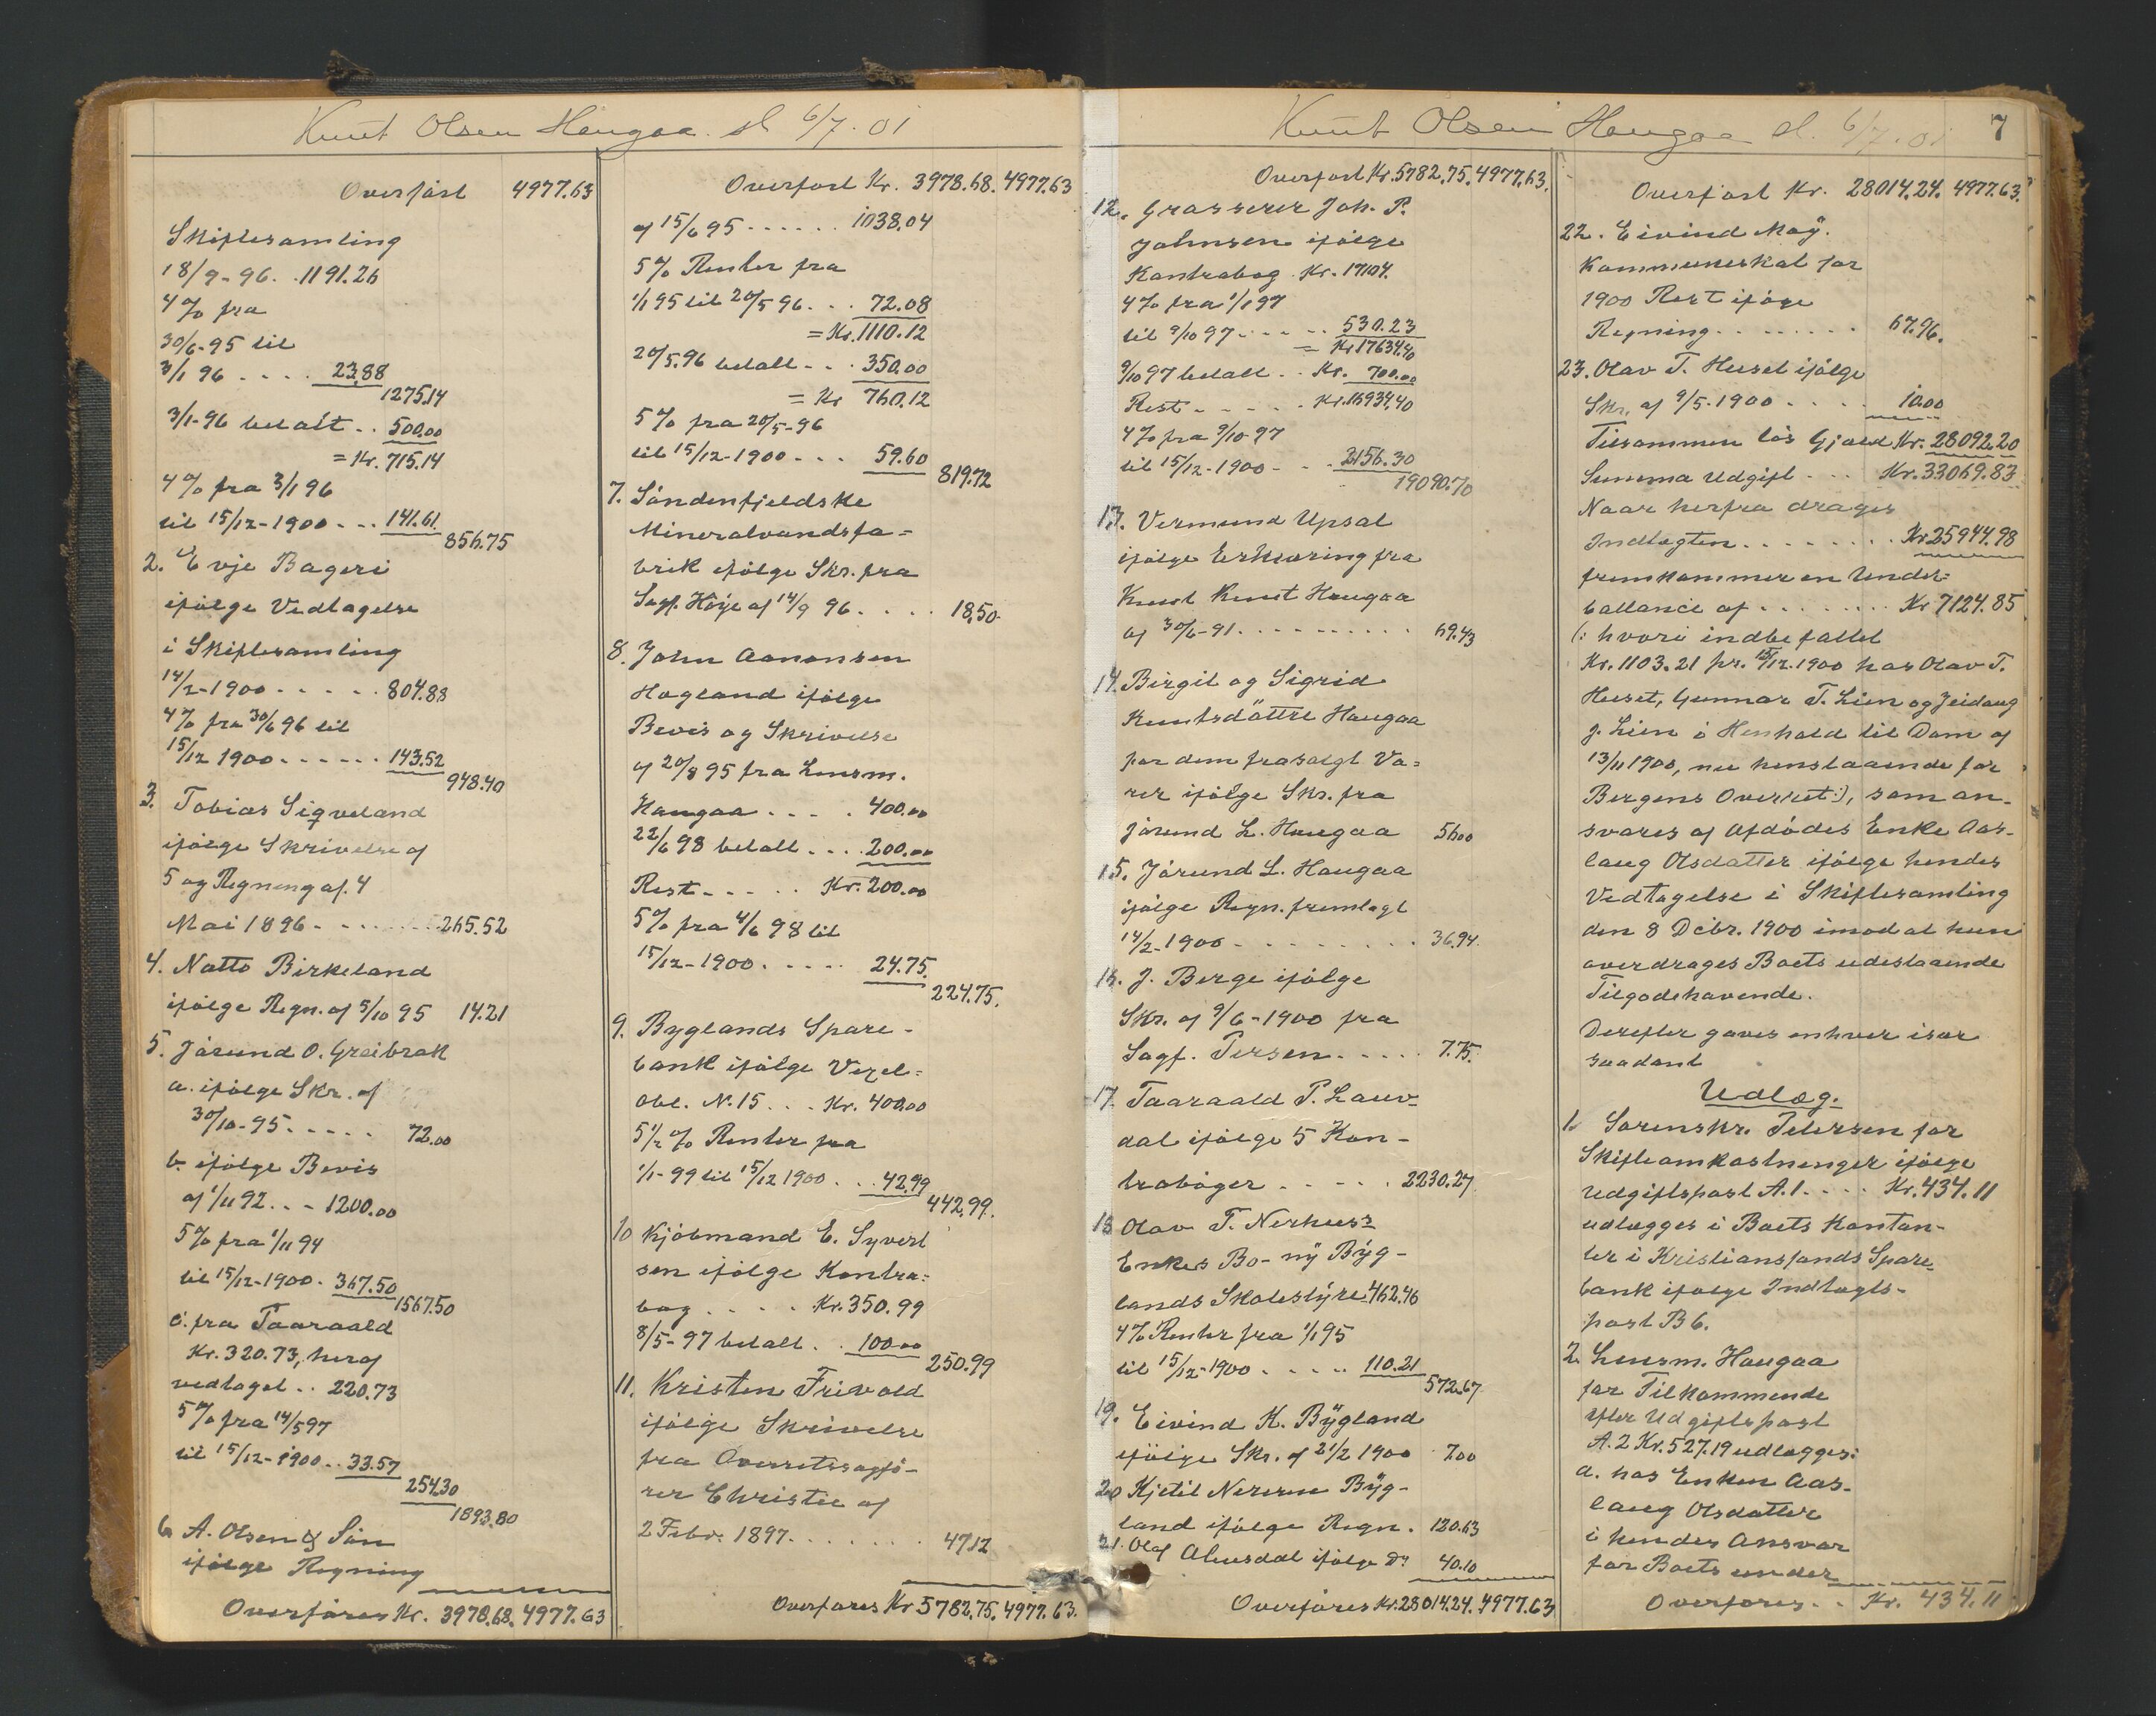 Knut Olsen Haugaa. sl 6/7. 01
Overført 4977.63
Skiftesamling
18/9-96. .1191.26
4% fra
30/6-95 til
3/1 96 .... 23.88
1275.14
3/1-96 betalt .. 500.00
= Kr. 715.14
4% fra 3/1 96
til 15/12-1900 ... 141.61
856.75
2. Evje Bageri
ifølge Vedtagelse
i Skiftesamling
14/2-1900 ..... 804.88
4% fra 30/6 96 til
15/12 1900 ...... 143.52
948.40
3. Tobias Sigveland
ifølge Skrivelse af
5 og Regning af. 4
Mai 1896 ........ 265.52
4. Natto Birkeland
ifølge Regn. af 5/10 95 14.21
5. Jørund O. Greibrok
a. ifølge Skr. af
30/10-95 ..... 72.00
b. ifølge Bevis
af 1/11 92 ... 1200.00
5% fra 1/11 94
til 15/12-1900. 367.50
1567.50
c. fra Taaraald
Kr. 320.73, heraf
vedtaget .. 220.73
5% fra 14/5 97
til 15/12-1900 .. 33.57
254.30
1893.80
6. A. Olsen & Søn
ifølge Regning
Overføres Kr. 3978.68. 4977.63
Overført Kr. 3978.68. 4977.63
af 15/6 95 ...... 1038.04
5% Renter fra
1/1 95 til 20/5 96 ... 72.08
= Kr. 1110.12
20/5.96 betalt ... 350.00
= Kr 760.12
5% fra 20/5-96
til 15/12-1900 ... 59.60
819.72
7. Søndenfjeldske
Mineralvandsfa=
brik ifølge Skr. fra
Sagf. Høye af 14/9 96 .... 18.50
8. John Aanonsen
Hagland ifølge
Bevis og Skrivelse
af 20/8 95 fra Lensm.
Haugaa .... 400.00
22/6 98 betalt .... 200.00
Rest ..... Kr. 200.00
5% fra 4/6 98 til
15/12-1900 ..... 24.75.
224.75.
9. Byglands Spare-
bank ifølge Vexel=
obl. N. 15 ... Kr. 400.00
5 1/2 % Renter fra
1/1-99 til 15/12 1900 ... 42.99
442.99.
10 Kjøbmand E. Syvert
sen ifølge Kontra=
bog .... Kr. 350.99
8/5-97 betalt .. 100.00
250.99
11. Kristen Trivold
ifølge Skrivelse
fra Overretssagfø-
rer Christie af
2 Febr. 1897 ....... 47.12
Overføres Kr 5782.75. 4977.63.
Knut Olsen Haugaa sl. 6/7. 01
7
Overført Kr. 5782.75. 4977.63.
12. Grosserer Joh. P.
Johnsen ifølge
Kontrabog Kr. 17104.
4% fra 1/1 97
til 9/10 97 ..... 530.23
= Kr 17634.40
9/10 97 betalt .. Kr. 700.00
Rest ..... Kr. 16934.40
4% fra 9/10-97
til 15/12-1900 ... 2156.30
19090.70
13. Vermund Upsal
ifølge Erklæring fra
Knut Knut Haugaa
af 30/6-91 .......... 69.43
14. Birgit og Sigrid
Knutsdøttre Haugaa
for dem frasolgt Va=
rer ifølge Skr. fra
Jørund L. Haugaa 56.00
15. Jørund L. Haugaa
ifølge Regn. fremlagt
14/2-1900 ......... 36.94.
16. J. Berge ifølge
Skr. af 9/6-1900 fra
Sagf. Tersen ..... 7.75.
17. Taaraald P. Lauv-
dal ifølge 5 Kon-
trabøger ..... 2230.27
18 Olav T. Nerhus's
Enkes Bo- ny Byg-
lands Skolestyre 462.46
4% Renter fra 1/1 95
til 15/12-1900 ..... 110.21
572.67
19. Eivind K. Bygland
ifølge Skr. af 21/2 1900 7.00
20 Kjetil Nerenne Byg-
land ifølge Regn. 120.63
21. Olaf Aleusdal ifølge Do 40.10
Overføres Kr. 28014.24. 4977.63
Overført Kr. 28014.24. 4977.63.
22. Eivind Moÿ.
Kommuneskat for
1900 Rest ifølge
Regning ........ 67.96.
23. Olav T. Huset ifølge
Skr. af 9/5.1900 .... 10.00
Tilsammen løs Gjæld Kr. 28092.20
Summa Udgift ... Kr. 33069.83
Naar herfra drages
Indtægten ....... Kr 25944.98
fremkommer en Under=
ballance af ....... Kr 7124.85
(: hvori indbefattet
Kr. 1103.21 pr. 15/12.1900 hos Olav T.
Huset, Gunnar T. Lien og Jeidaug
J. Lien i Henhold til Dom af
13/11 1900, nu henstaaende for
Bergens Overret:), som an-
svares af Afdødes Enke Aas-
laug Olsdatter ifølge hendes
Vedtagelse i Skiftesamling
den 8 Debr. 1900 imod at hun
overdrages Boets udestaaende
Tilgodehavende.
Derefter gaves enhver især
saadant
Udlæg.
1. Sorenskr. Petersen for
Skifteomkostninger ifølge
Udgiftspost A.1 .... Kr. 434.11
udlægges i Boets Kontan-
ter i Kristianssands Spare-
bank ifølge Indtægts-
post B 6.
2. Lensm. Haugaa
for Tilkommende
efter Udgiftspost
A.2 Kr. 527.19 udlægges:
a. hos Enken Aas-
laug Olsdatter
i hendes Ansvar
for Boets under
Overføres .. Kr. 434.11